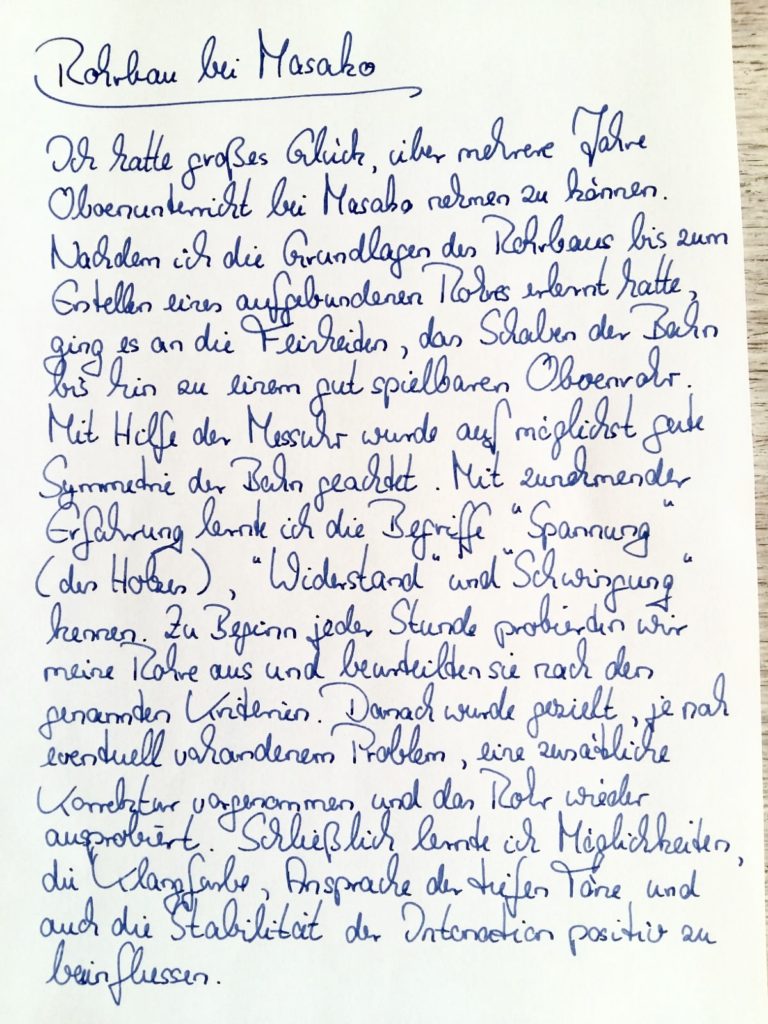 Rohrbau bei Masako
Ich hatte großes Glück, über mehrere Jahre
Oboenunterricht bei Masako nehmen zu können.
Nachdem ich die Grundlagen des Rohrbaus bis zum
Erstellen eines aufgebundenen Rohres erlernt hatte,
ging es an die Feinheiten, das Schaben der Bahn
bis hin zu einem gut spielbaren Oboenrohr.
Mit Hilfe der Messuhr wurde auf möglichst gute
Symmetrie der Bahn geachtet. Mit zunehmender
Erfahrung lernte ich die Begriffe "Spannung"
(des Holzes), "Widerstand" und "Schwingung"
kennen. Zu Beginn jeder Stunde probierten wir
meine Rohre aus und beurteilten sie nach den
genannten Kriterien. Danach wurde gezielt, je nach
eventuell vorhandenem Problem, eine zusätzliche
Korrektur vorgenommen und das Rohr wieder
ausprobiert. Schließlich lernte ich Möglichkeiten,
die Klangfarbe, Ansprache der tiefen Töne und
auch die Stabilität der Intonation positiv zu
beeinflussen.